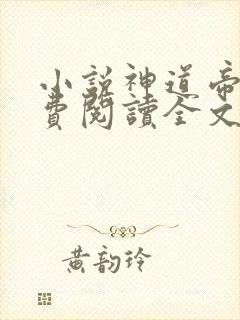 小説神道帝
費閱讀全文
黃韵玲